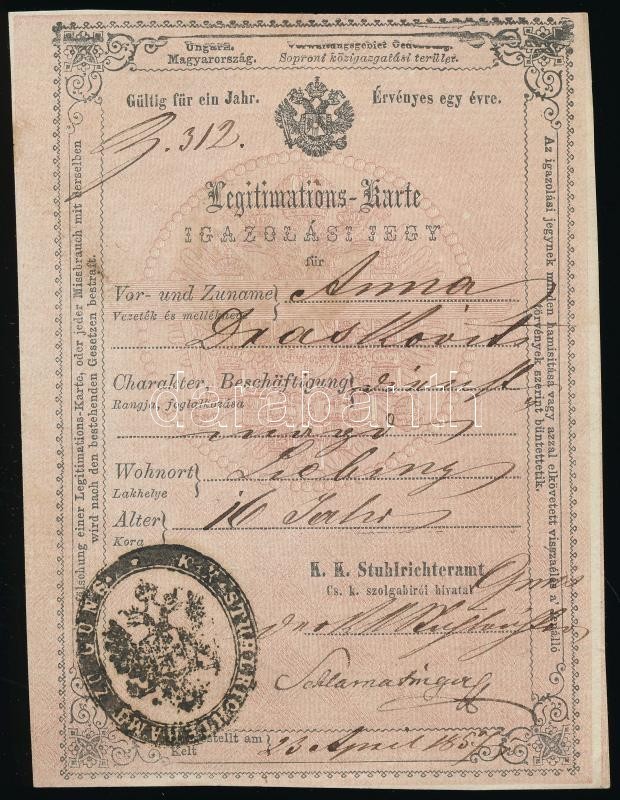 Ungarn. Verwaltungsgebiet
Magyarország. Soproni közigazgatási terület.
Gültig für ein Jahr. Érvényes egy évre.
Z. 312.
Legitimations-Karte
IGAZOLÁSI JEGY
für
Vor- und Zuname Anna
Vezeték és mellékneve
Draskovits
Charakter, Beschäftigung Dienst
Rangja, foglalkozása
magd
Wohnort Liebing
Lakhelye
Alter 16 Jahr
Kora
K. K. Stuhlrichteramt Güns
Cs. k. szolgabirói hivatal
der k. k. Stuhlrichter
Kelt 23 April 185
Fälschung einer Legitimations-Karte, oder jeder Missbrauch mit derselben
wird nach den bestehenden Gesetzen bestraft.
Az igazolási jegynek minden hamisitása vagy azzal elkövetett visgzaélés a fenálló
törvények szerint büntettetik.
K. K. STUHLRICHTERAMT ZU GÜNS.
darabanth